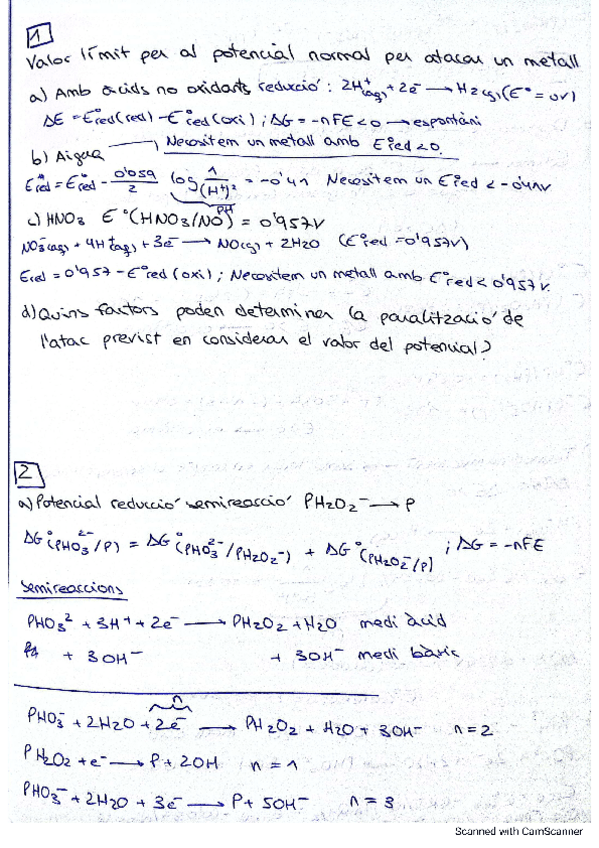 1
Valor límit per al potencial normal per atacar un metall
a) Amb àcids no oxidants reducció: 2H⁺(aq) + 2e⁻ → H₂(g) (E° = 0V)
ΔE = E°red(red) - E°red(oxi); ΔG = -nFE < 0 → espontàni
Necesitem un metall amb E°red < 0.
b) Aigua
Ered = E°red - 0'059/2 log 1/(H⁺)² = -0'41 Necesitem un E°red < -0'41V
PH
c) HNO₃ E°(HNO₃/NO) = 0'957V
NO₃⁻(aq) + 4H⁺(aq) + 3e⁻ → NO(g) + 2H₂O (E°red = 0'957V)
Ered = 0'957 - E°red(oxi); Necesitem un metall amb E°red < 0'957V.
d) Quins factors poden determinar la paralització de
l'atac previst en considerar el valor del potencial?
2
a) Potencial reducció semireacció PH₂O₂⁻ → P
ΔG°(PHO₃²⁻/P) = ΔG°(PHO₃²⁻/PH₂O₂⁻) + ΔG°(PH₂O₂⁻/P) ; ΔG = -nFE
Semireaccions
PHO₃² + 3H⁺ + 2e⁻ → PH₂O₂ + H₂O medi àcid
+ 3OH⁻ + 3OH⁻ medi bàsic
n
PHO₃⁻ + 2H₂O + 2e⁻ → PH₂O₂ + H₂O + 3OH⁻ n = 2
PH₂O₂ + e⁻ → P + 2OH n = 1
PHO₃⁻ + 2H₂O + 3e⁻ → P + 5OH⁻ n = 3
Scanned with CamScanner